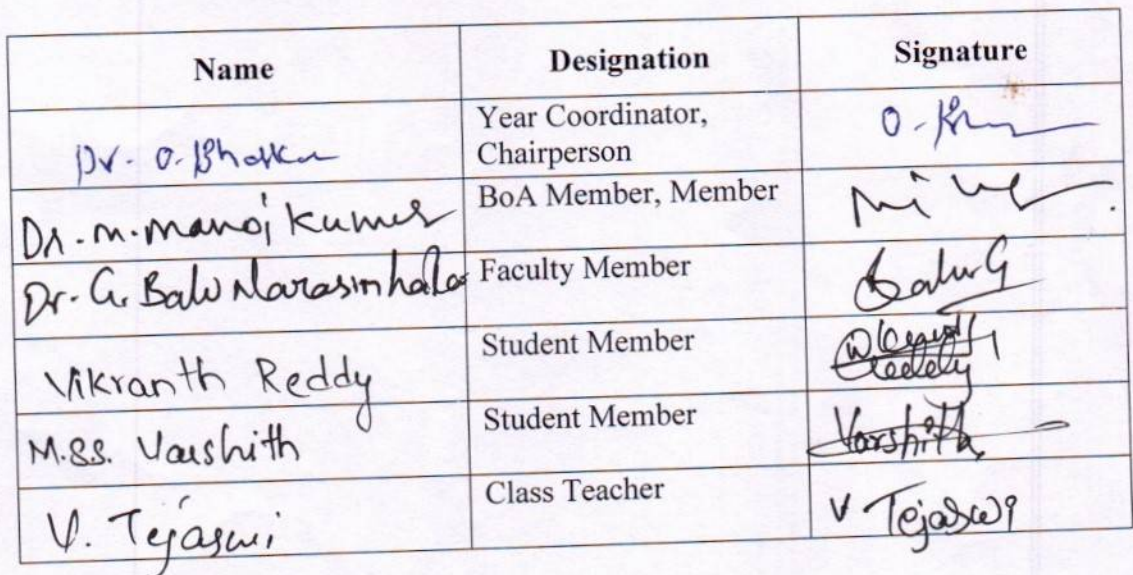 Name Designation Signature
Dr. O. Bhaskar Year Coordinator,
Chairperson
Dr. M. Manoj Kumar BoA Member, Member
Dr. G. Balu Narasimhala Faculty Member Balu G
Vikranth Reddy Student Member Vikranth
Reddy
M.SS. Varshith Student Member Varshith
V. Tejaswi Class Teacher V Tejaswi